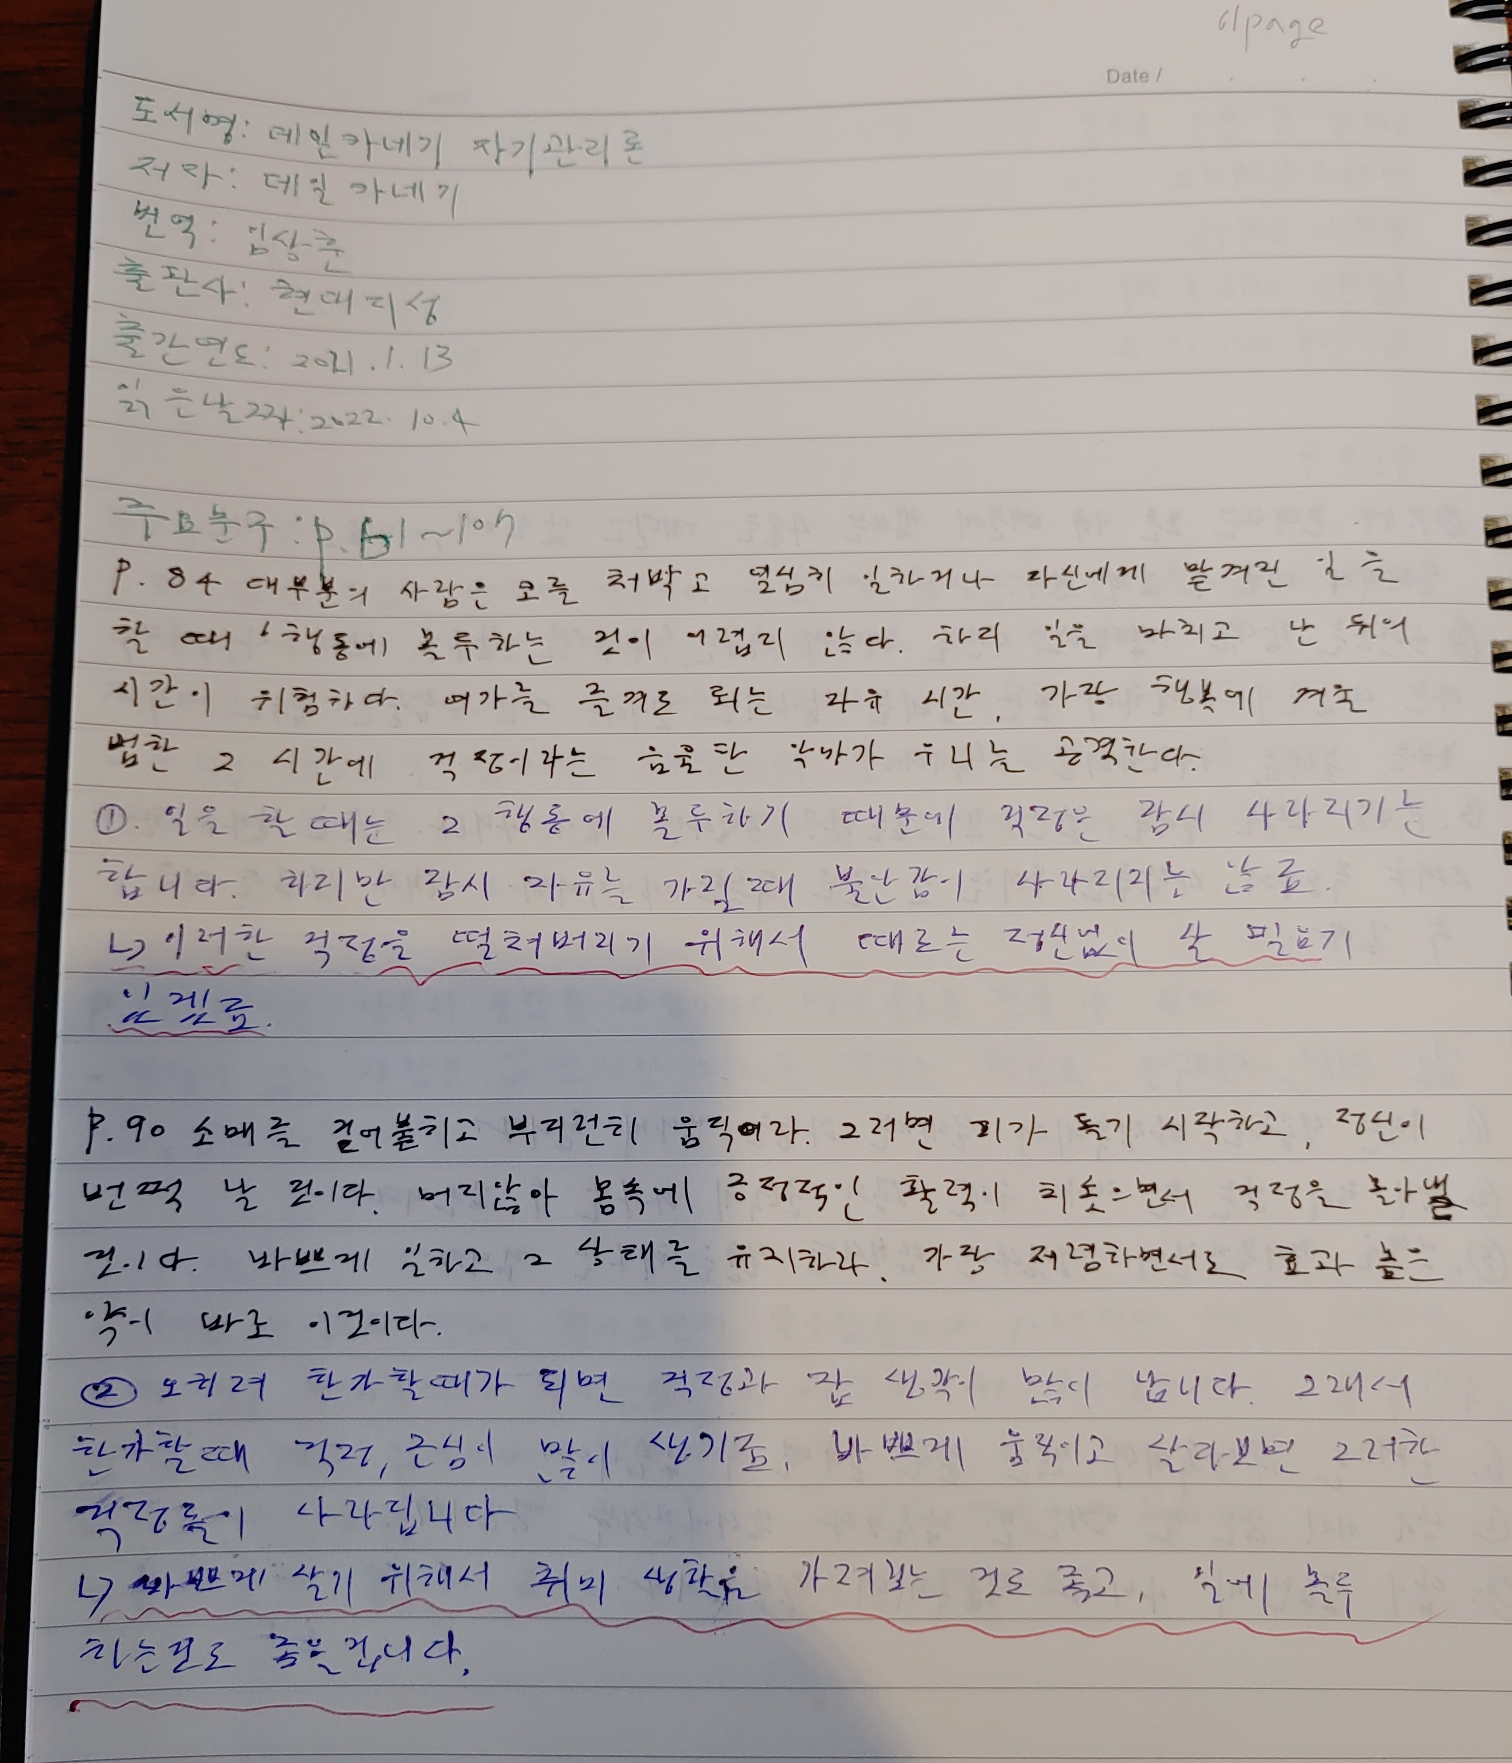 Date /
도서명: 데일카네기 자기관리론
저자: 데일 카네기
번역: 임상훈
출판사: 현대지성
출간연도: 2021.1.13
읽은날짜: 2022. 10.4
주요문구: p.61~107
p. 84 대부분의 사람은 코를 처박고 열심히 일하거나 자신에게 맡겨진 일을
할 때 행동에 몰두하는 것이 어렵지 않다. 하지 일을 마치고 난 뒤의
시간이 위험하다. 여가를 즐겨도 되는 자유 시간, 가장 행복에 겨울
법한 그 시간에 걱정이라는 음울한 악마가 우리는 공격한다.
①. 일을 할 때는 그 행동에 몰두하기 때문에 걱정은 잠시 사라지기는
합니다. 하지만 잠시 자유를 가질때 불안감이 사라지지는 않죠.
↳ 이러한 걱정을 떨쳐버리기 위해서 때로는 정신없이 살 필요가
있겠죠.
p.90 소매를 걷어붙히고 부지런히 움직여라. 그러면 피가 돌기 시작하고, 정신이
번쩍 날 것이다. 머지않아 몸속에 긍정적인 활력이 치솟으면서 걱정을 몰아낼
것이다. 바쁘게 일하고 그 상태를 유지하라. 가장 저렴하면서도 효과 높은
약이 바로 이것이다.
② 오히려 한가할때가 되면 걱정과 잡 생각이 많이 납니다. 그래서
한가할때 걱정, 근심이 많이 생기죠. 바쁘게 움직이고 살다보면 그러한
걱정들이 사라집니다
↳ 바쁘게 살기 위해서 취미 생활을 가져보는 것도 좋고, 일에 몰두
하는것도 좋을겁니다.